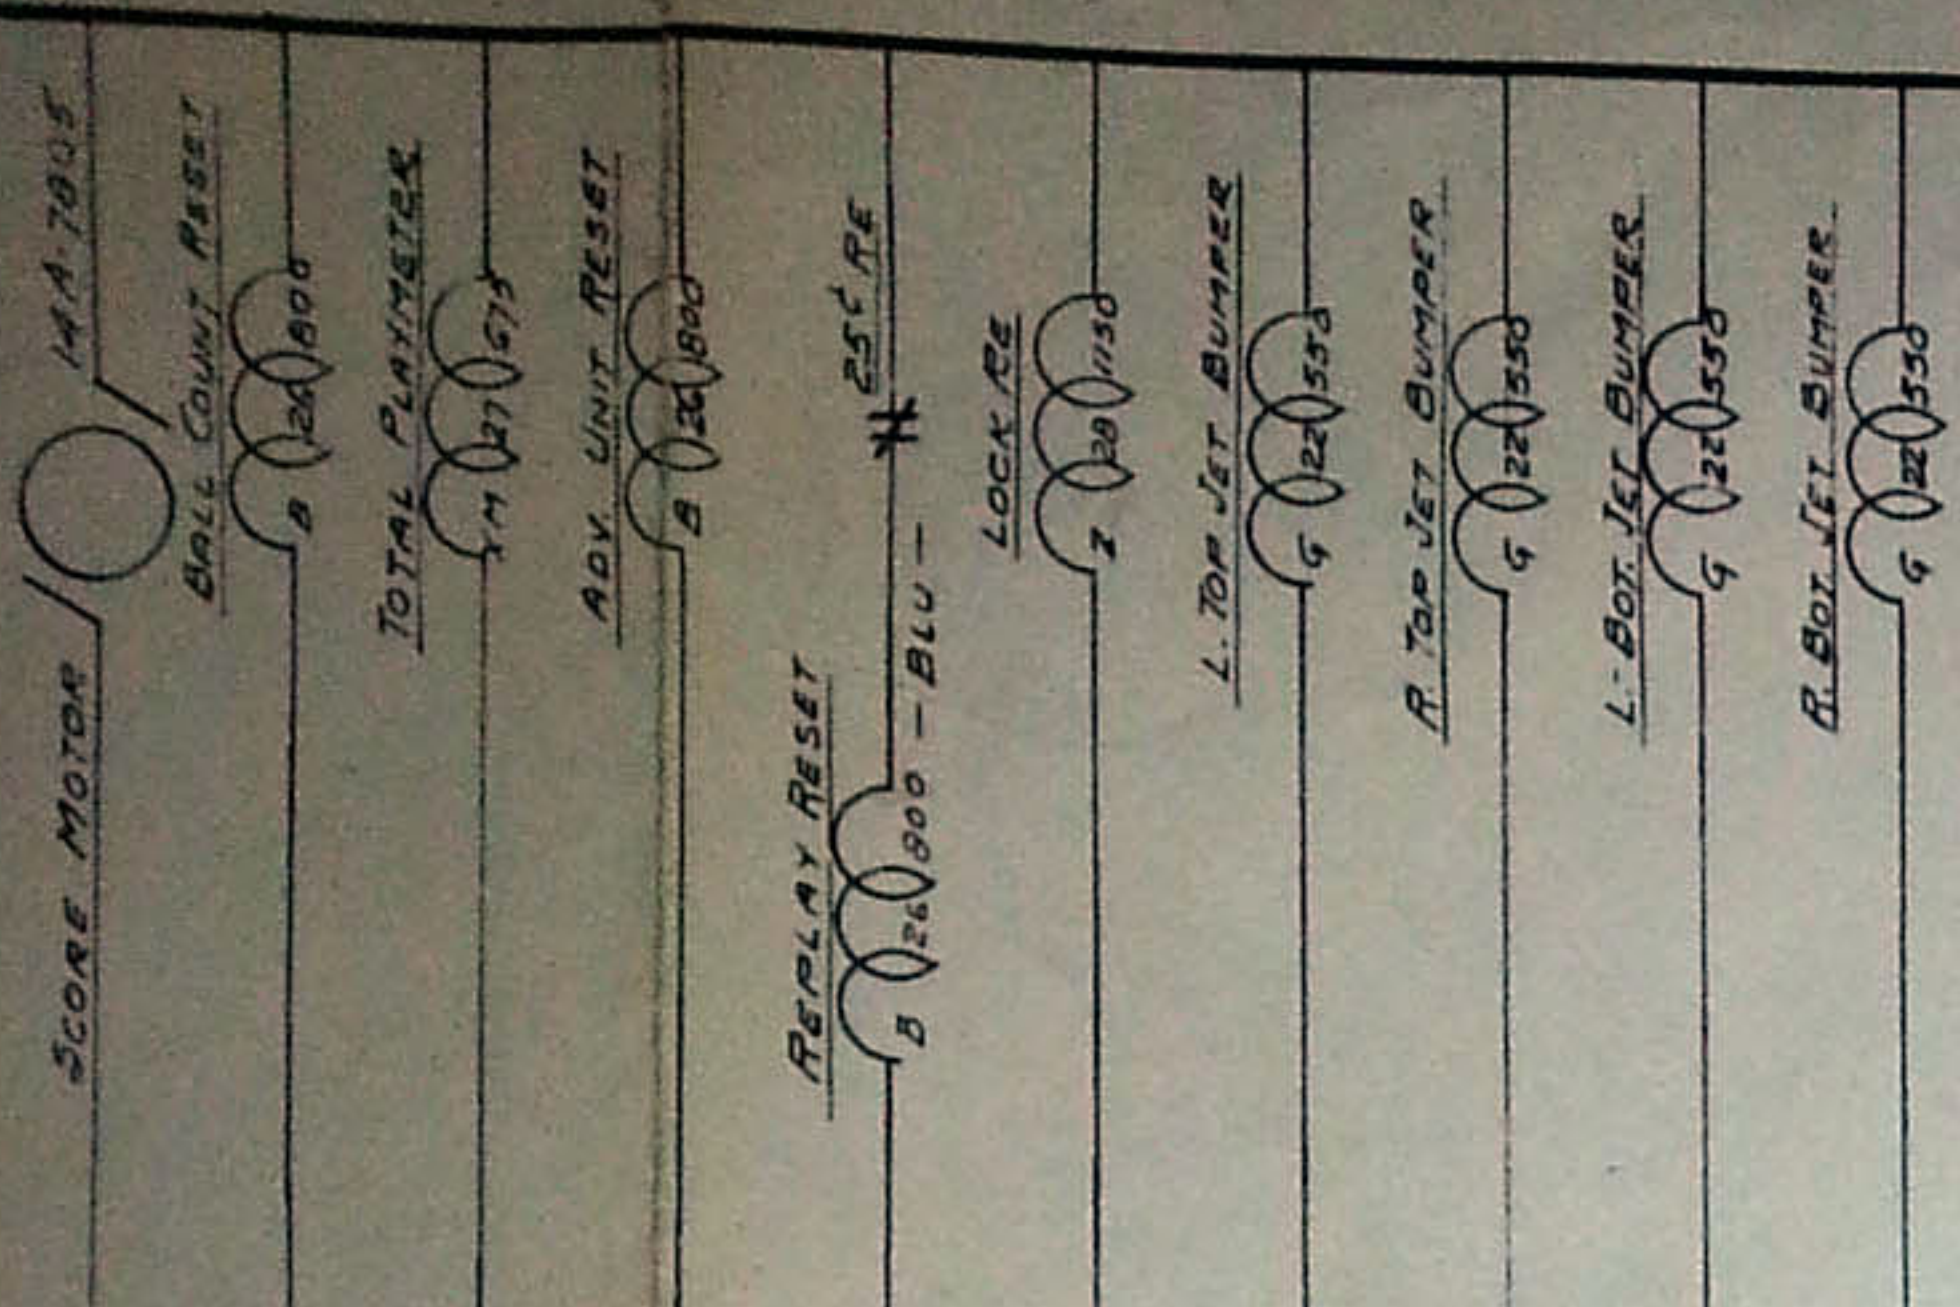 SCORE MOTOR
14A-7805
BALL COUNT RSET
B 26 800
TOTAL PLAYMETER
M 27 675
ADV. UNIT RESET
B 26 800
REPLAY RESET
25¢ RE
B 26 800 - BLU -
LOCK RE
Z 28 1150
L. TOP JET BUMPER
G 22 550
R TOP JET BUMPER
G 22 550
L. BOT. JET BUMPER
G 22 550
R. BOT. JET BUMPER
G 22 550